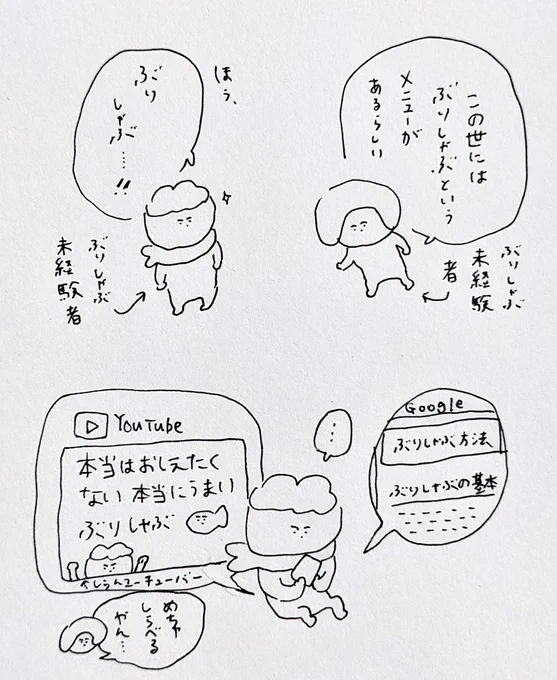 この世には
ぶりしゃぶという
メニューが
あるらしい
ぶりしゃぶ
未経験
者
ほう、
ぶり
しゃぶ……!!
ぶりしゃぶ
未経験者
Google
ぶりしゃぶ方法
ぶりしゃぶの基本
…
YouTube
本当はおしえたく
ない本当にうまい
ぶりしゃぶ
↑しらんユーチューバー
めちゃ
しらべる
やん…